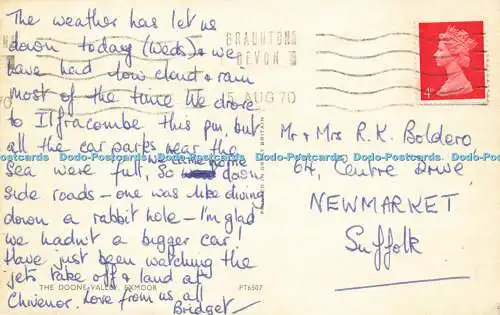 The weather has let us
down today (Weds) & we
have had low cloud & rain
most of the time We drove
to Ilfracombe this pm. but
all the car parks near the
sea were full, so we came down
side roads - one was like diving
down a rabbit hole - I'm glad
we hadn't a bigger car!
Have just been watching the
jets take off & land at
Chivenor. Love from us all
Bridget
THE DOONE VALLEY, EXMOOR
PT6507
BRAUNTON
DEVON
15 AUG 70
4D
Mr & Mrs R. K. Boldero
64, Centre Drive,
NEWMARKET
Suffolk
Dodo-Postcards Dodo-Postcards Dodo-Postcards Dodo-Postcards Dodo-Postcards